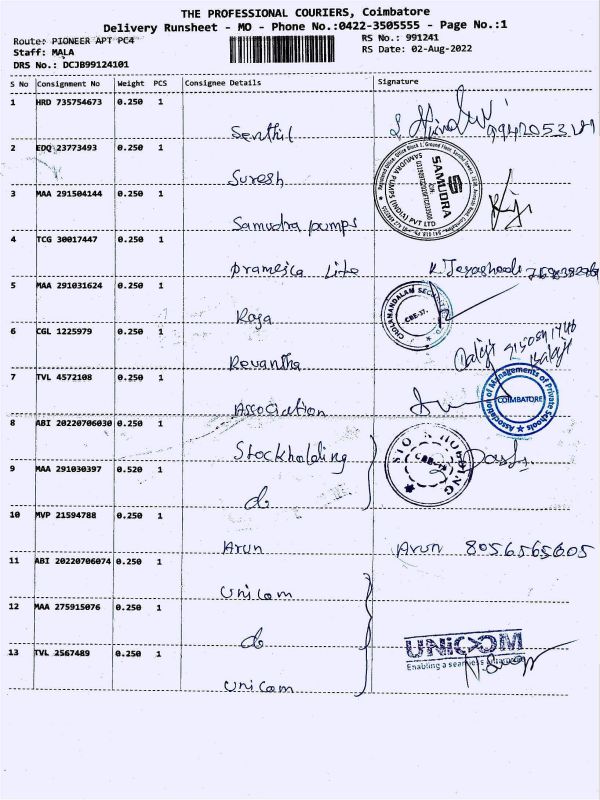 THE PROFESSIONAL COURIERS, Coimbatore
Delivery Runsheet - MO - Phone No.:0422-3505555 - Page No.:1
Route: PIONEER APT PC4
RS No.: 991241
Staff: MALA
RS Date: 02-Aug-2022
DRS No.: DCJB99124101
S No Consignment No Weight PCS Consignee Details Signature
1 HRD 735754673 0.250 1
Senthil
2 EDQ 23773493 0.250 1
Suresh
SAMUDRA
SAMUDRA PUMPS (INDIA) PVT LTD
3 MAA 291504144 0.250 1
Samudra pumps
4 TCG 30017447 0.250 1
Pramesca Lite
5 MAA 291031624 0.250 1
Raja
CBE-37.
6 CGL 1225979 0.250 1
Revantha
7 TVL 4572108 0.250 1
Association
Association of Managements of Private Schools
COIMBATORE
8 ABI 20220706030 0.250 1
Stockholding
9 MAA 291030397 0.520 1
do
10 MVP 21594788 0.250 1
Arun Arun 8056565605
11 ABI 20220706074 0.250 1
Unicom
12 MAA 275915076 0.250 1
do
UNICOM
Enabling a seamless
13 TVL 2567489 0.250 1
Unicom